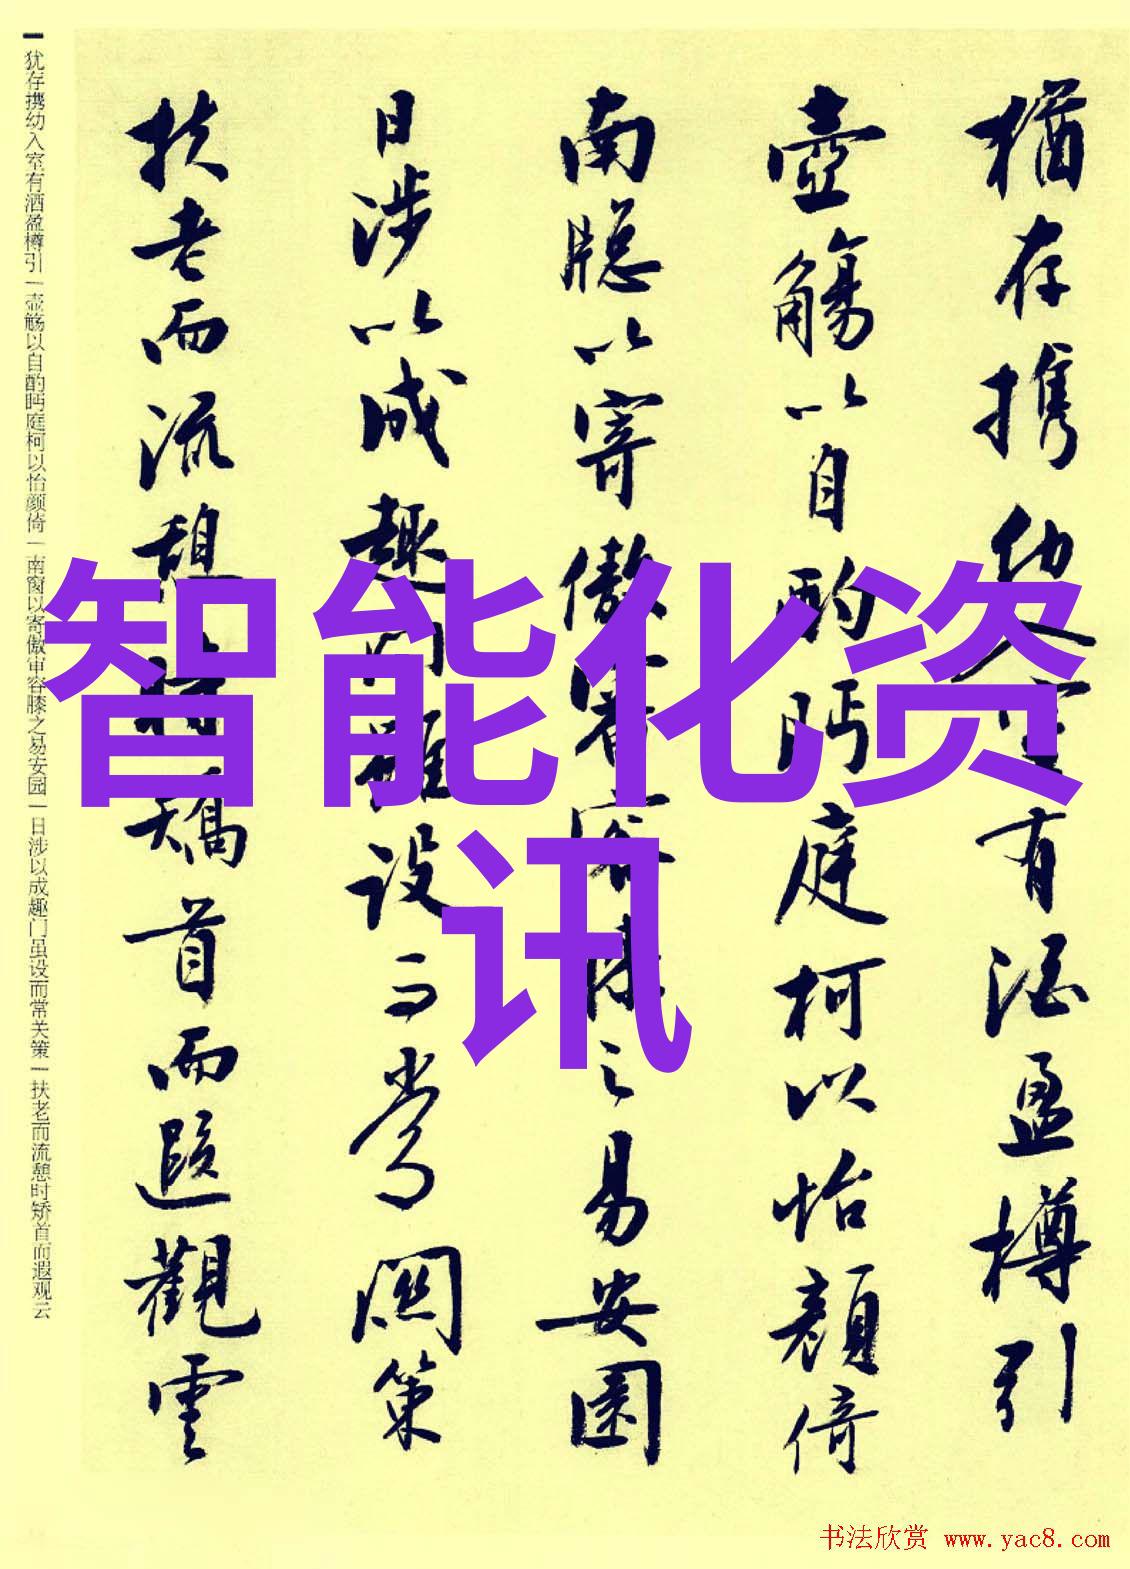 猶存携幼入室有酒盈樽引
壺觴以自酌眄庭柯以怡顏倚
南牕以寄傲審容膝之易安園
日涉以成趣門雖設而常關策
扶老而流憩時矯首而遐觀雲
犹存携幼入室有洒盈樽引|壶觞以自酌眄庭柯以怡颜倚|南窗以寄傲审容膝之易安园|日涉以成趣门虽设而常关策|扶老而流憩时矫首而遐观云
智能化资
讯
书法欣赏 www.yac8.com